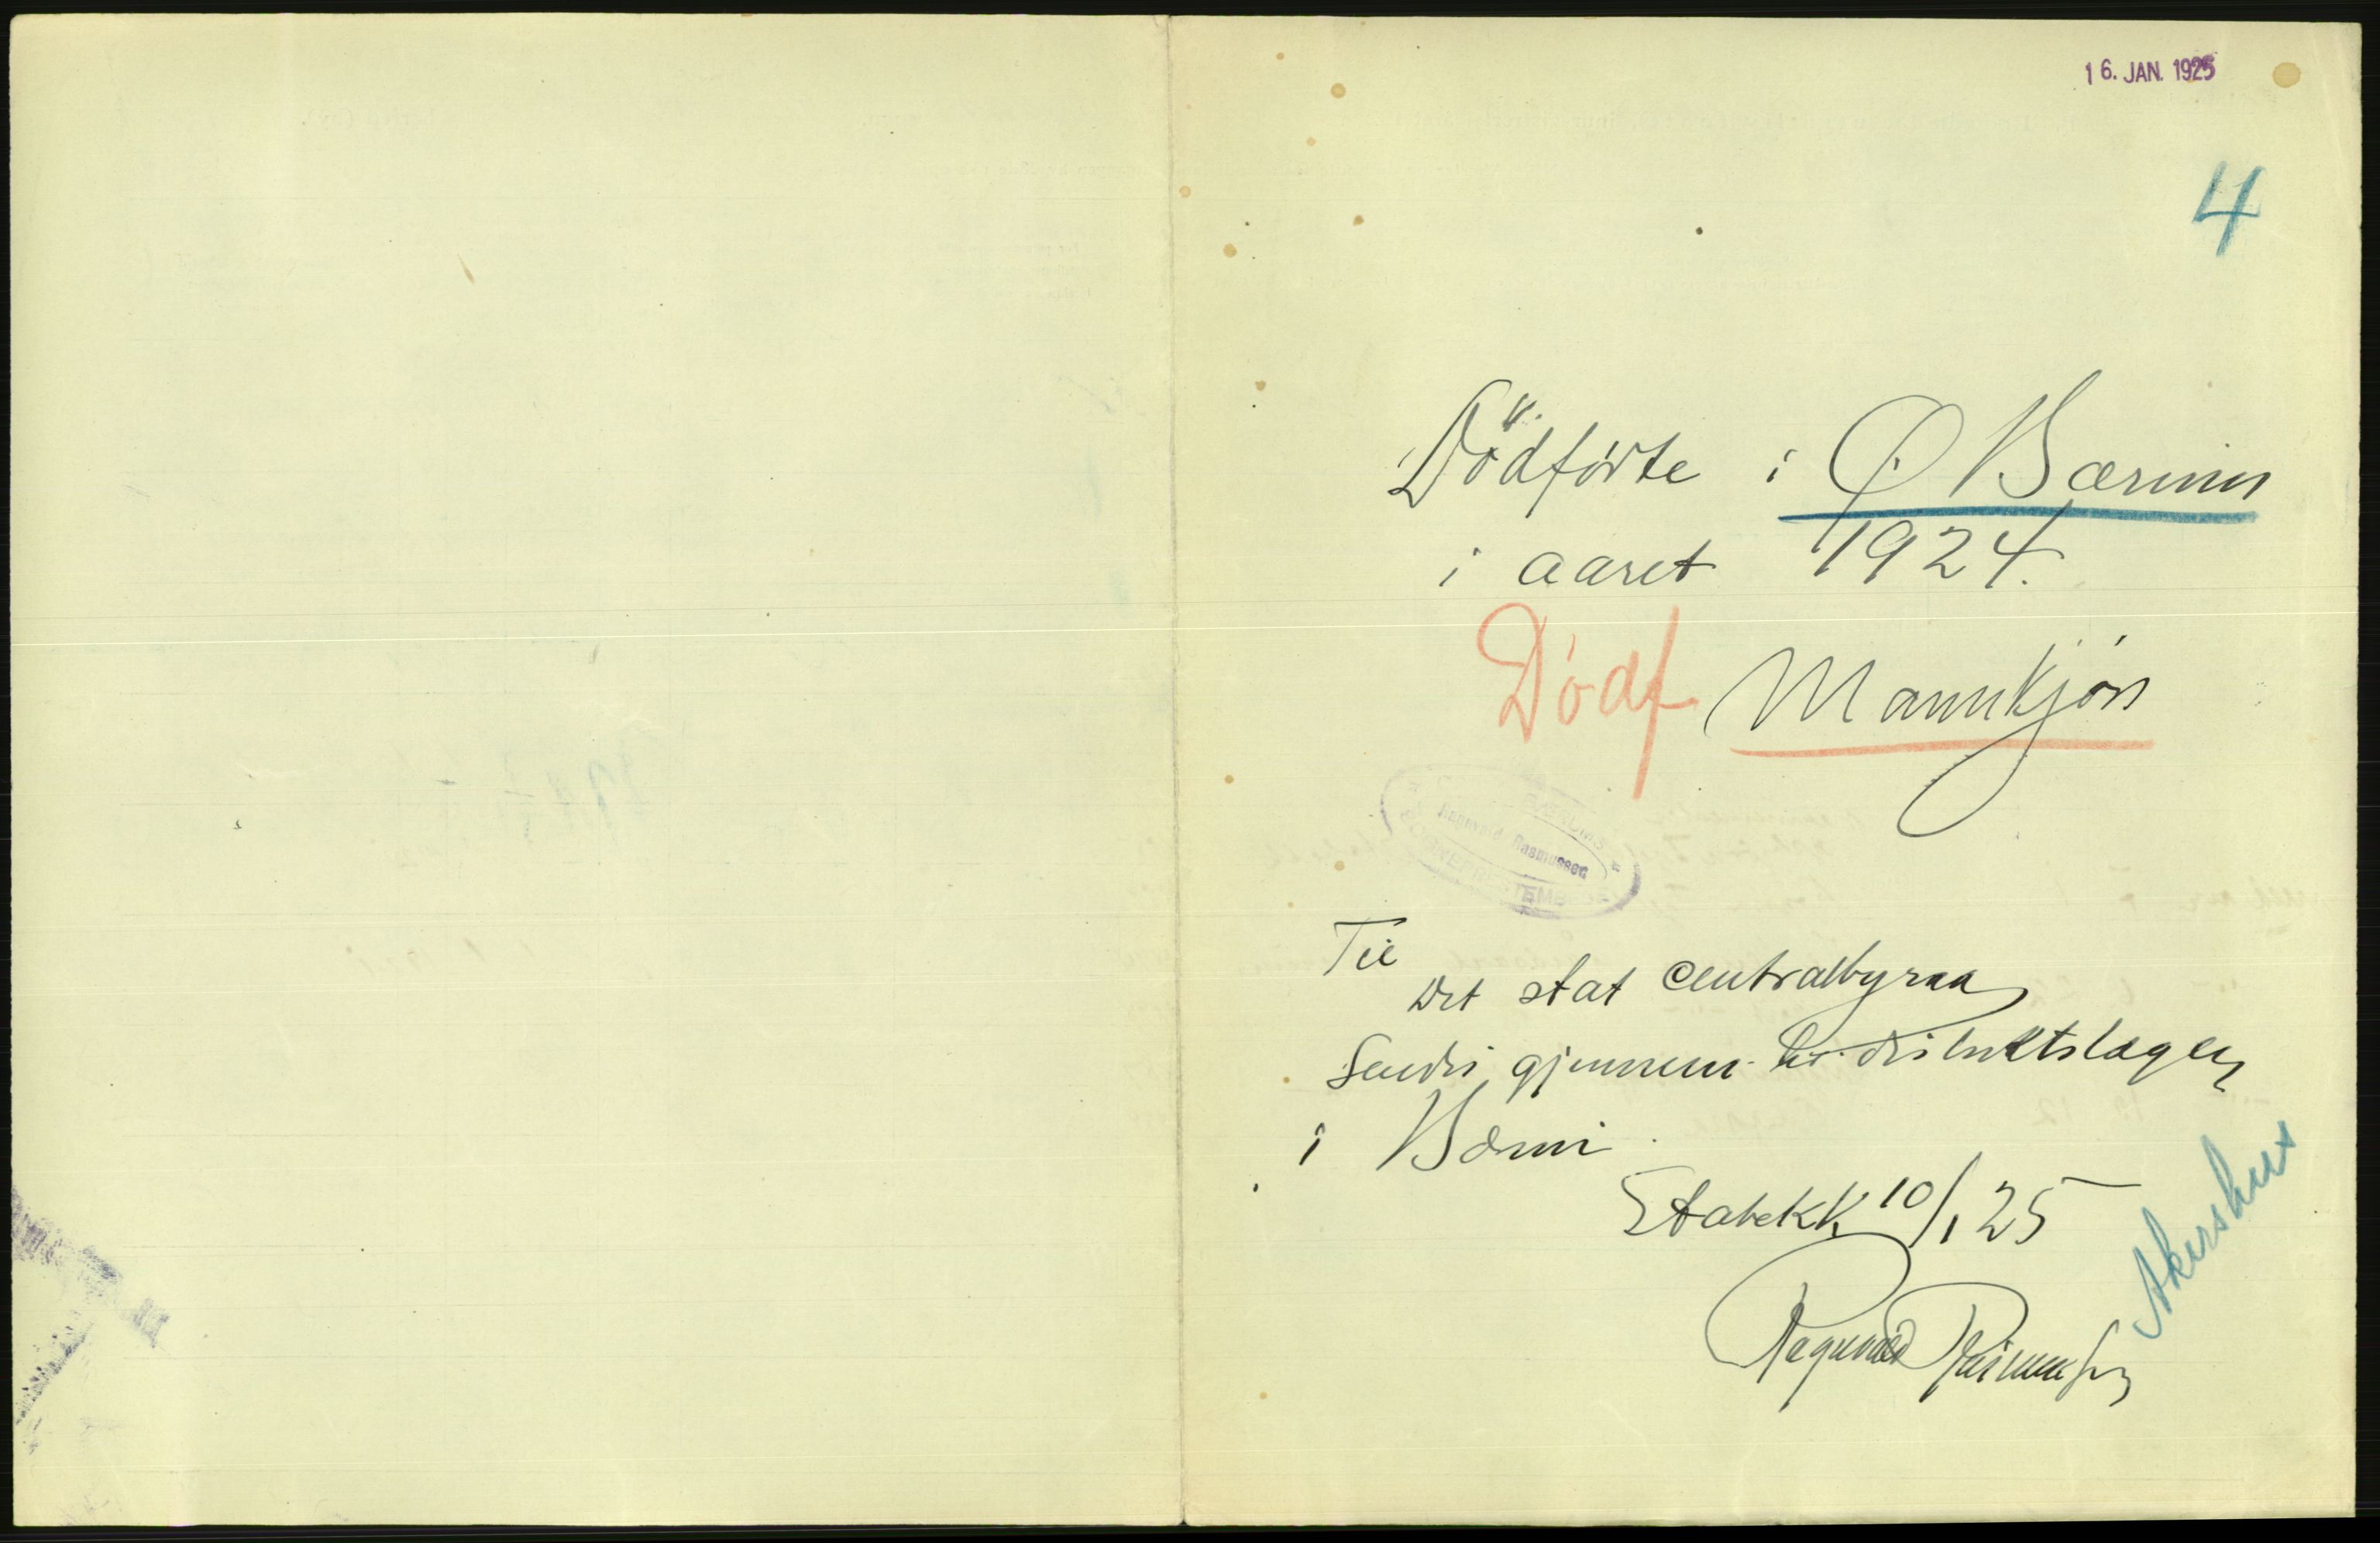 16. JAN. 1925
4
Dödførte i Ø Bærum
i aaret 1924.
Dødf Mannkjøn
Ragnvald Rasmussen
Til
Det stat Centralbyraa
Sendes gjennem hr. distriktslægen
i Bærum
Stabekk 10/1 25
Ragnvald Rasmussen
Akershus